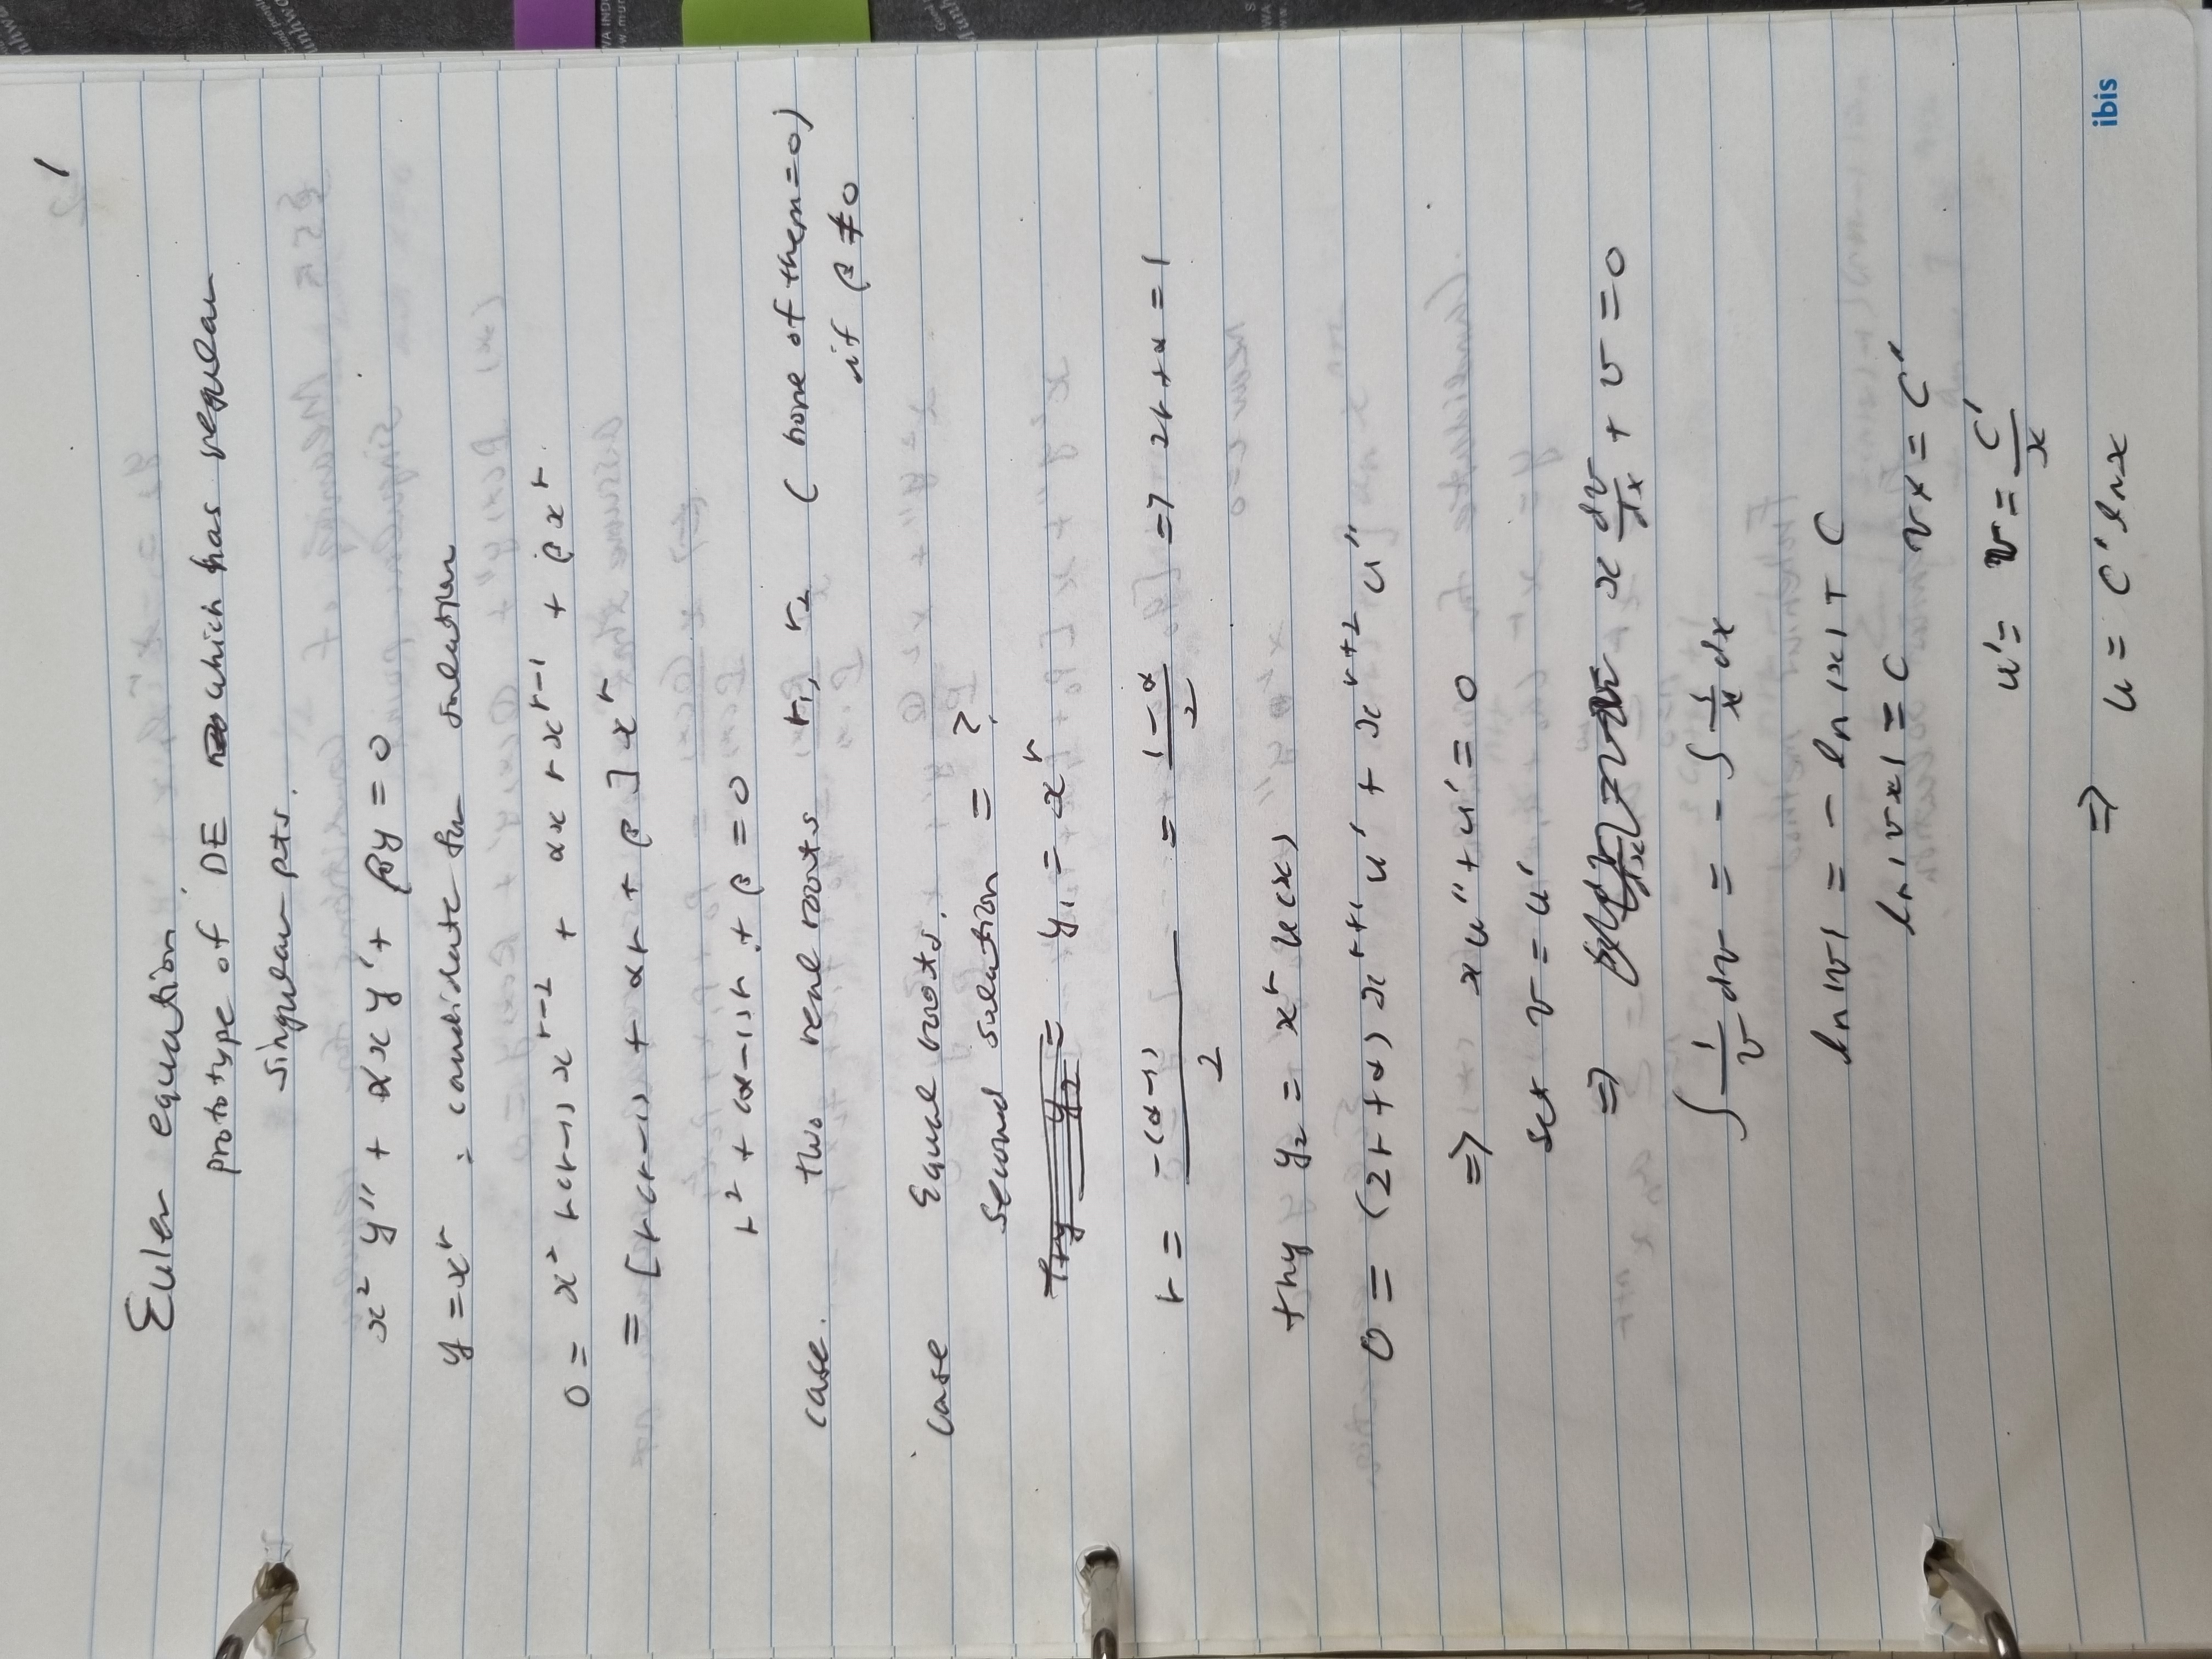 1
Euler equation.
prototype of DE which has regular
singular pts.
x² y'' + αx y' + βy = 0
y = x^r : candidate for solution
0 = x² r(r-1) x^{r-2} + αx r x^{r-1} + β x^r.
= [r(r-1) + αr + β] x^r
r² + (α-1)r + β = 0
case. two real roots r₁, r₂ (none of them = 0)
if β ≠ 0
case Equal roots.
second solution = ?
Try y₂ = y₁ = x^r
r = -(α-1)/2 = (1-α)/2 => 2r + α = 1
try y₂ = x^r u(x)
0 = (2r+α) x^{r+1} u' + x^{r+2} u''
=> xu'' + u' = 0
set v = u'
=> x dv/dx + v = 0
∫ 1/v dv = - ∫ 1/x dx
ln|v| = - ln|x| + C
ln|vx| = C vx = C'
u' = v = C'/x
=> u = C' ln x
ibis